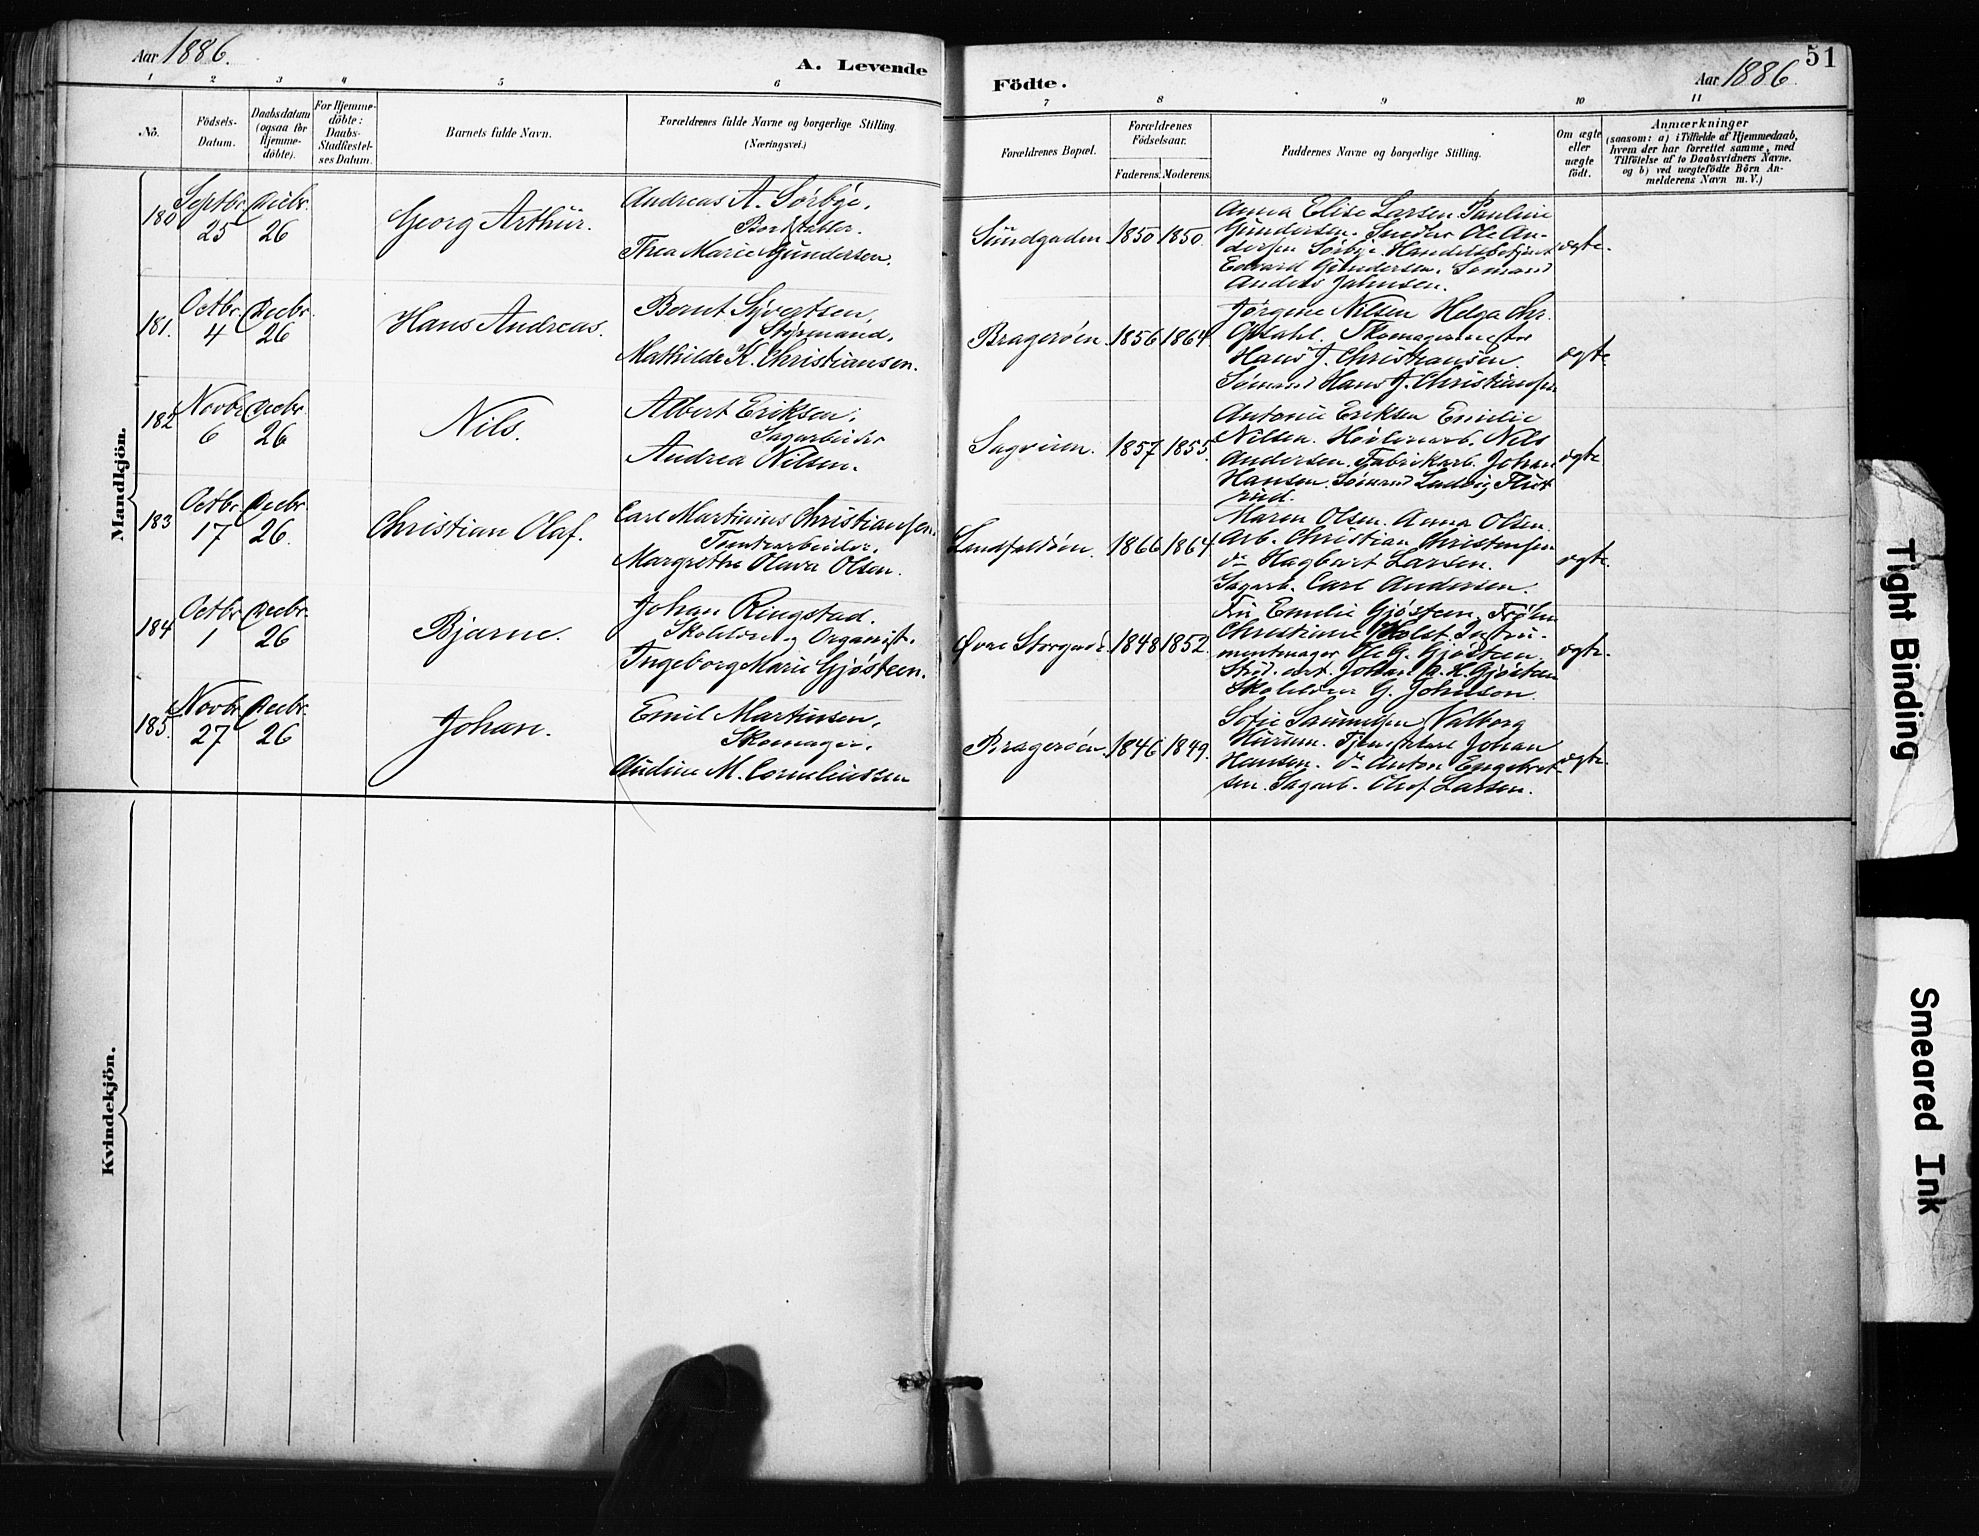 Aar 1886.
A. Levende
Födte.
Aar 1886.
51
1 2 3 4 5 6
7 8 9 10 11
No.
Födsels-
Datum.
Daabsdatum
(ogsaa for
Hjemme-
döbte).
For Hjemme-
döbte:
Daabs-
Stadfæstel-
ses Datum.
Barnets fulde Navn.
Forældrenes fulde Navne og borgerlige Stilling
(Næringsvei.)
Forældrenes Bopæl.
Forældrenes
Födselsaar.
Faderens. Moderens.
Faddernes Navne og borgerlige Stilling.
Om ægte
eller
uægte
födt.
Anmærkninger
(saasom: a) i Tilfælde af Hjemmedaab,
hvem der har forrettet samme, med
Tilföielse af to Daabsvidners Navne.
og b) ved uægtefödte Börn An-
melderens Navn m.V.)
Mandkjön.
180 Septbr. 25 Decbr. 26
Georg Arthur.
Andreas A. Sørbye.
Bordstabler.
Thea Marie Gundersen.
Sundgaden 1850 1850.
Anna Elise Larsen. Pauline
Gundersen. Snedker Ole An-
dersen Sørbye. Handelsbetjent
Edvard Gundersen. Sømand
Anders Jahnsen.
ægte.
181. Octbr. 4 Decbr. 26
Hans Andreas.
Bernt Syvertsen,
Styrmand.
Mathilde K. Christiansen.
Bragerøen. 1856 1864
Jørgine Nilsen Helga Chr.
Opdahl. Skomagermester
Hans J. Christiansen.
Sømand Hans J. Christiansen
ægte.
182 Novbr. 6 Decbr. 26
Nils.
Albert Eriksen,
Sagarbeider
Andrea Nilsen.
Sagveien. 1857 1855.
Antonie Eriksen Emilie
Nilsen. Høvleriarb. Nils
Andersen. Fabrikarb. Johan
Hansen. Sømand Ludvig
ægte
183 Octbr. 17 Decbr. 26.
Christian Olaf.
Carl Martinius Christiansen.
Tomtearbeider.
Margrethe Olava Olsen.
Landfaldøen. 1866 1864
Maren Olsen. Anna Olsen.
Arb. Christian Christensen
do Hagbart Larsen.
Sagarb. Carl Andersen.
ægte.
184 Octbr. 1 Decbr. 26
Bjarne.
Johan Ringstad.
Skolelærer og Organist.
Ingeborg Marie Gjøsteen.
Øvre Storgade. 1848 1852.
Fru Emilie Gjøsteen Frøken
Christiane Holst. Instru-
mentmager Ole G. Gjøsteen
Stud. art. Johan R. K. Gjøsteen
Skolelærer G. Johnson.
ægte.
185. Novbr. 27 Decbr. 26
Johan.
Emil Martinsen,
Skomager.
Audine M. Corneliussen
Bragerøen 1846 1849.
Sofie Samuelsen Valborg
Hurum. Tjenestekarl Johan
Hansen. do Anton Engebret-
sen. Sagarb. Olaf Larsen.
ægte.
Kvindekjön.
Tight Binding
Smeared Ink